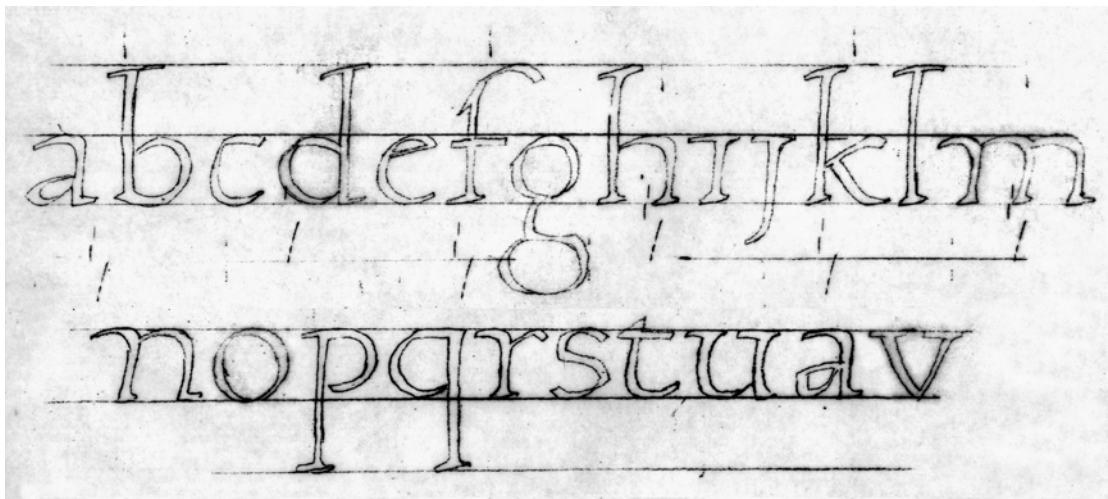 abcdefghıȷklm
nopqrstuav